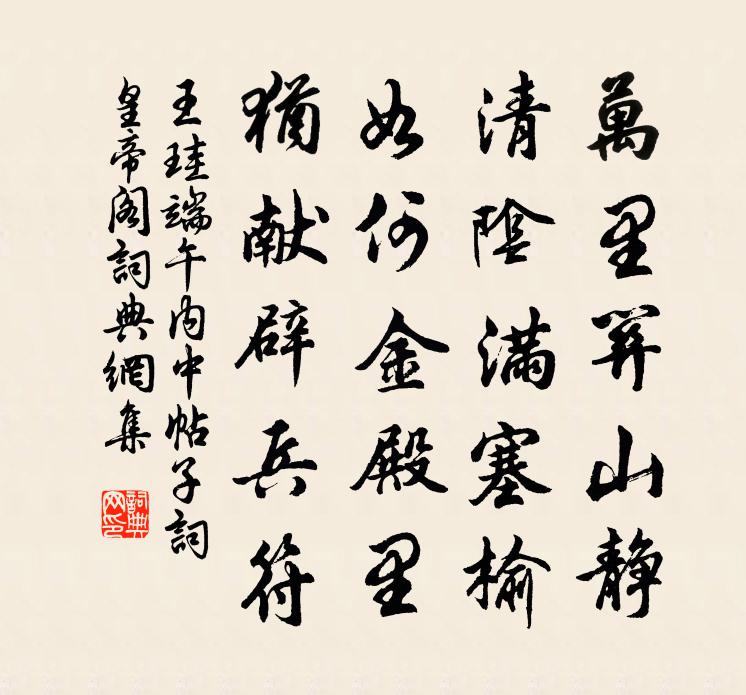 萬里關山静
清陰滿塞榆
如何金殿里
猶献辟兵符
王珪端午内中帖子詞
皇帝阁詞典網集
詞典网印